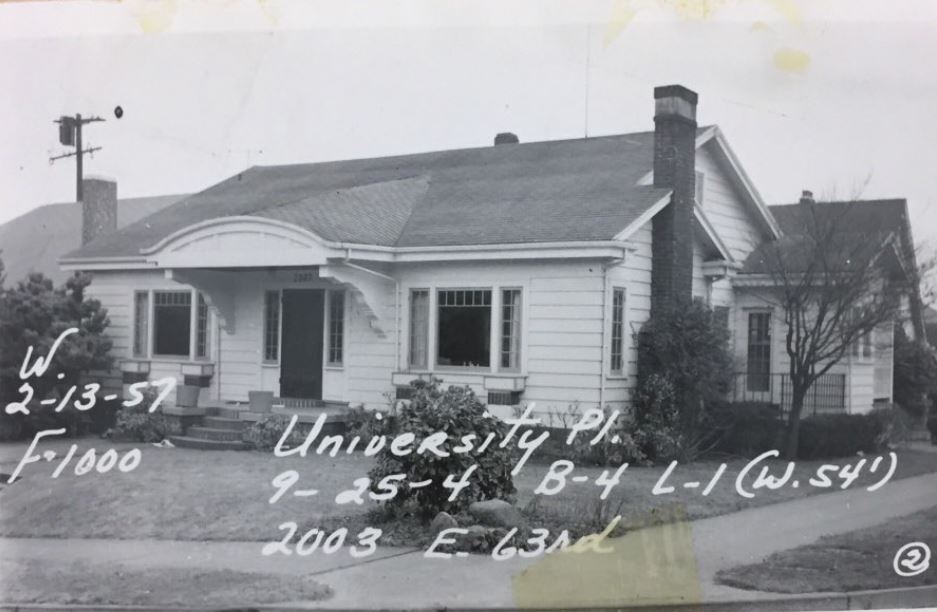 W.
2-13-57
F-1000
University Pl.
9-25-4 B-4 L-1 (W.54')
2003 E. 63rd
2